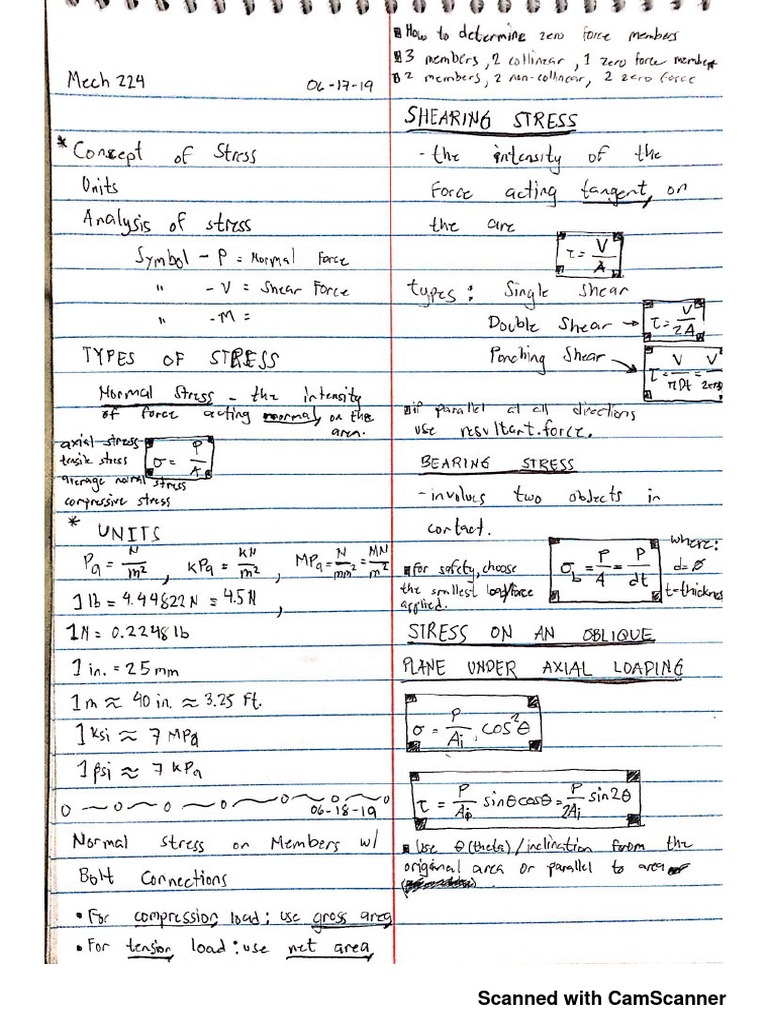 Mech 224
06-17-19
* Concept of Stress
Units
Analysis of stress
Symbol - P = Normal Force
" - V = Shear Force
" - M =
TYPES OF STRESS
Normal Stress - the intensity
of force acting normal, on the
area.
axial stress
tensile stress
average normal stress
compressive stress
σ = P/A
* UNITS
Pa = N/m², kPa = KN/m², MPa = N/mm² = MN/m²
1 lb = 4.44822 N = 4.5 N,
1 N = 0.2248 lb
1 in. = 25 mm
1 m ≈ 40 in. ≈ 3.25 ft.
1 ksi ≈ 7 MPa
1 psi ≈ 7 kPa
06-18-19
Normal Stress on Members w/
Bolt Connections
• For compression load: use gross area
• For tension load: use net area
How to determine zero force members
3 members, 2 collinear, 1 zero force member
2 members, 2 non-collinear, 2 zero force
SHEARING STRESS
- the intensity of the
Force acting tangent, on
the are
τ = V/A
types: Single shear
Double Shear → τ = V/2A
Ponching Shear → τ = V/πDt = V
if parallel at all directions
use resultant force.
BEARING STRESS
- involves two objects in
contact.
for safety, choose
the smallest load/force
applied.
σb = P/A = P/dt
where:
d = ø
t-thicknes
STRESS ON AN OBLIQUE
PLANE UNDER AXIAL LOADING
σ = P/Ai cos²θ
τ = P/Aφ sinθcosθ = P/2Ai sin2θ
Use θ (theta)/inclination from the
origianal area or parallel to area
Scanned with CamScanner